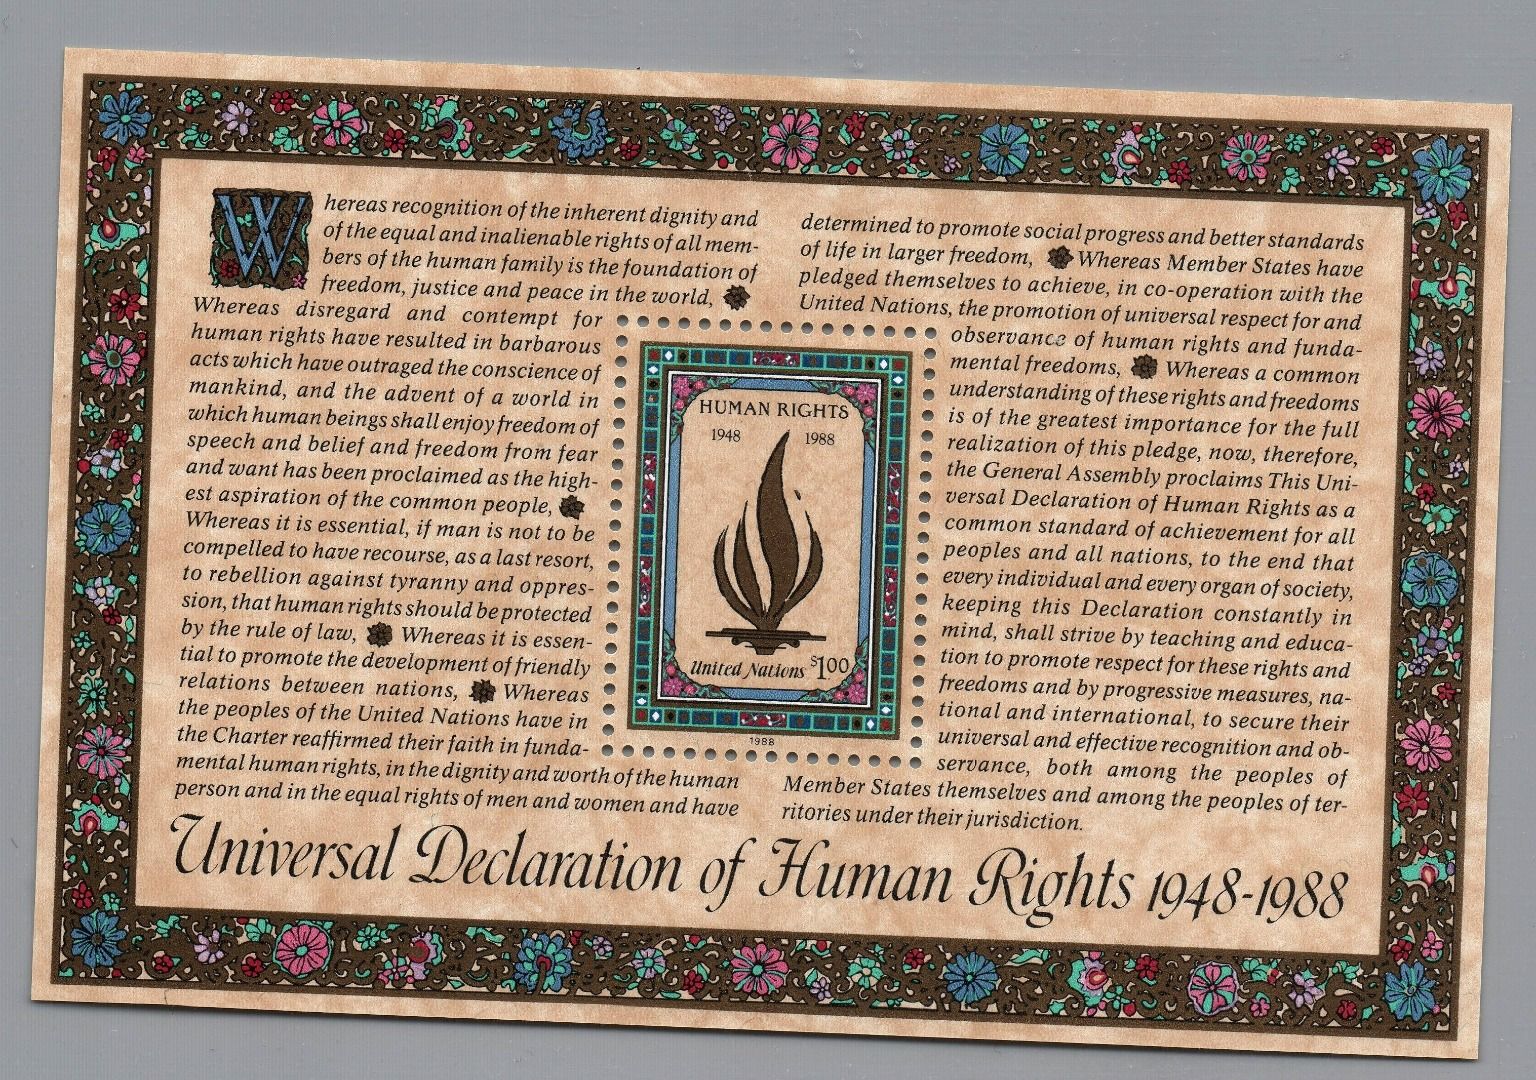 Whereas recognition of the inherent dignity and
of the equal and inalienable rights of all mem-
bers of the human family is the foundation of
freedom, justice and peace in the world,
Whereas disregard and contempt for
human rights have resulted in barbarous
acts which have outraged the conscience of
mankind, and the advent of a world in
which human beings shall enjoy freedom of
speech and belief and freedom from fear
and want has been proclaimed as the high-
est aspiration of the common people,
Whereas it is essential, if man is not to be
compelled to have recourse, as a last resort,
to rebellion against tyranny and oppres-
sion, that human rights should be protected
by the rule of law, Whereas it is essen-
tial to promote the development of friendly
relations between nations, Whereas
the peoples of the United Nations have in
the Charter reaffirmed their faith in funda-
mental human rights, in the dignity and worth of the human
person and in the equal rights of men and women and have
determined to promote social progress and better standards
of life in larger freedom, Whereas Member States have
pledged themselves to achieve, in co-operation with the
United Nations, the promotion of universal respect for and
observance of human rights and funda-
mental freedoms, Whereas a common
understanding of these rights and freedoms
is of the greatest importance for the full
realization of this pledge, now, therefore,
the General Assembly proclaims This Uni-
versal Declaration of Human Rights as a
common standard of achievement for all
peoples and all nations, to the end that
every individual and every organ of society,
keeping this Declaration constantly in
mind, shall strive by teaching and educa-
tion to promote respect for these rights and
freedoms and by progressive measures, na-
tional and international, to secure their
universal and effective recognition and ob-
servance, both among the peoples of
Member States themselves and among the peoples of ter-
ritories under their jurisdiction.
HUMAN RIGHTS
1948 1988
United Nations $1.00
1988
Universal Declaration of Human Rights 1948-1988